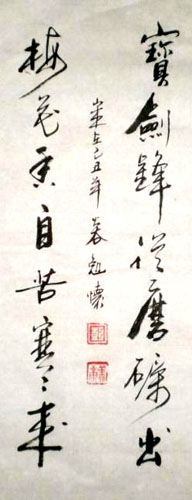 寶劍鋒從磨礪出
梅花香自苦寒來
丑年